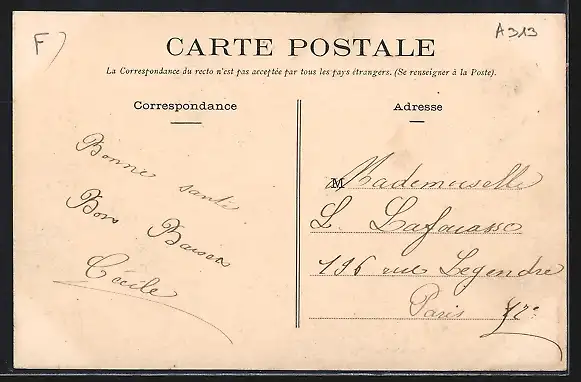 F)
A313
CARTE POSTALE
La Correspondance du recto n'est pas acceptée par tous les pays étrangers. (Se renseigner à la Poste).
Correspondance
Adresse
Bonne santé
Bons Baisers
Cécile
Mademoiselle
L. Lafocasse
196 rue Legendre
Paris 17e